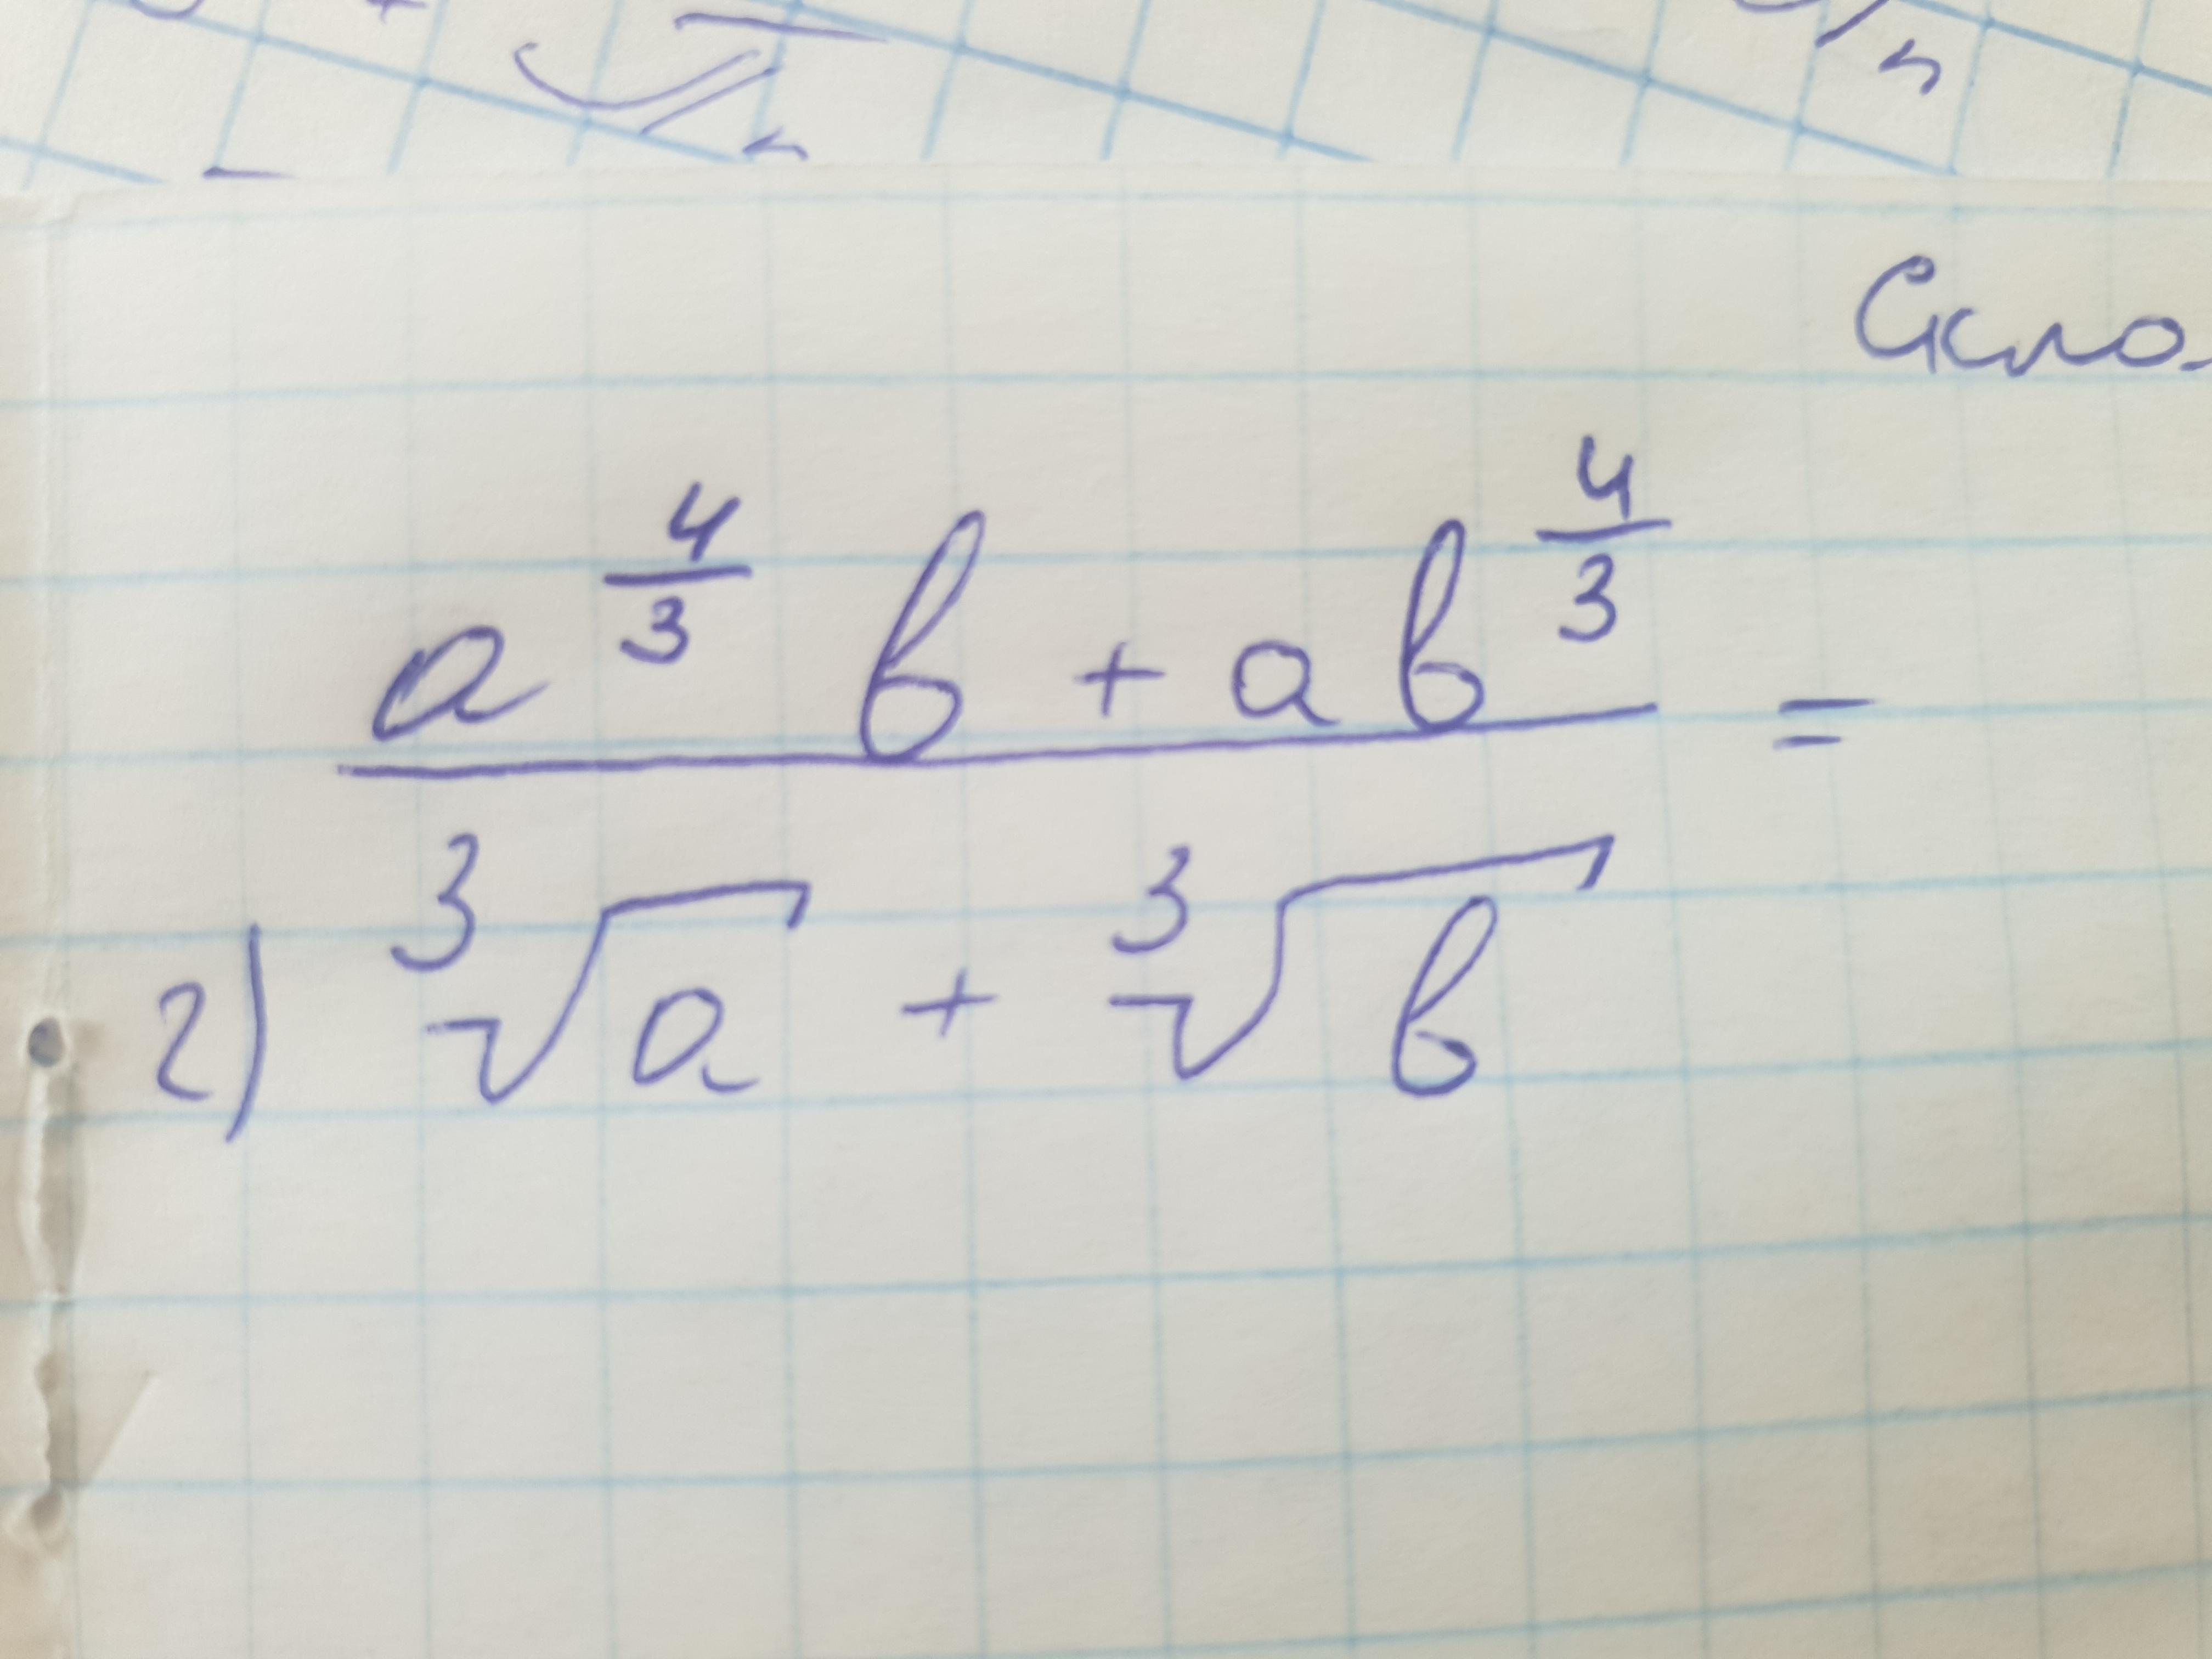 Скло
a^{\frac{4}{3}} b + a b^{\frac{4}{3}} =
2) \sqrt[3]{a} + \sqrt[3]{b}